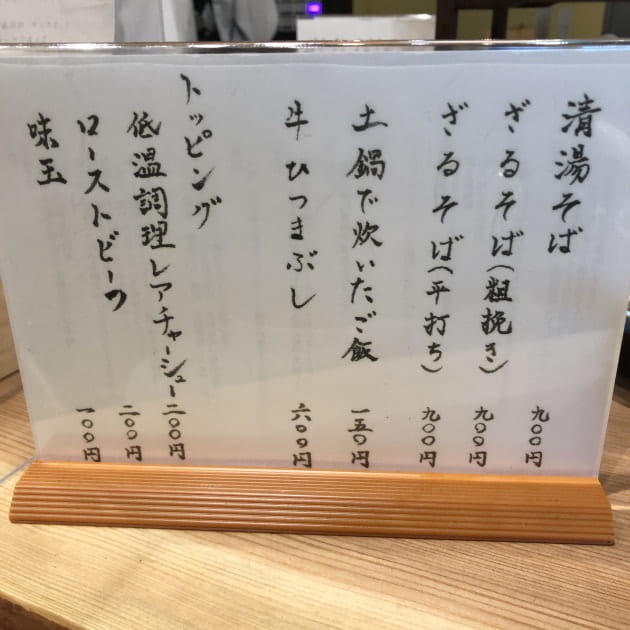 清湯そば 九〇〇円
ざるそば(粗挽き) 九〇〇円
ざるそば(平打ち) 九〇〇円
土鍋で炊いたご飯 一五〇円
牛ひつまぶし 六〇〇円
トッピング
低温調理レアチャーシュー 二〇〇円
ローストビーフ 二〇〇円
味玉 一〇〇円